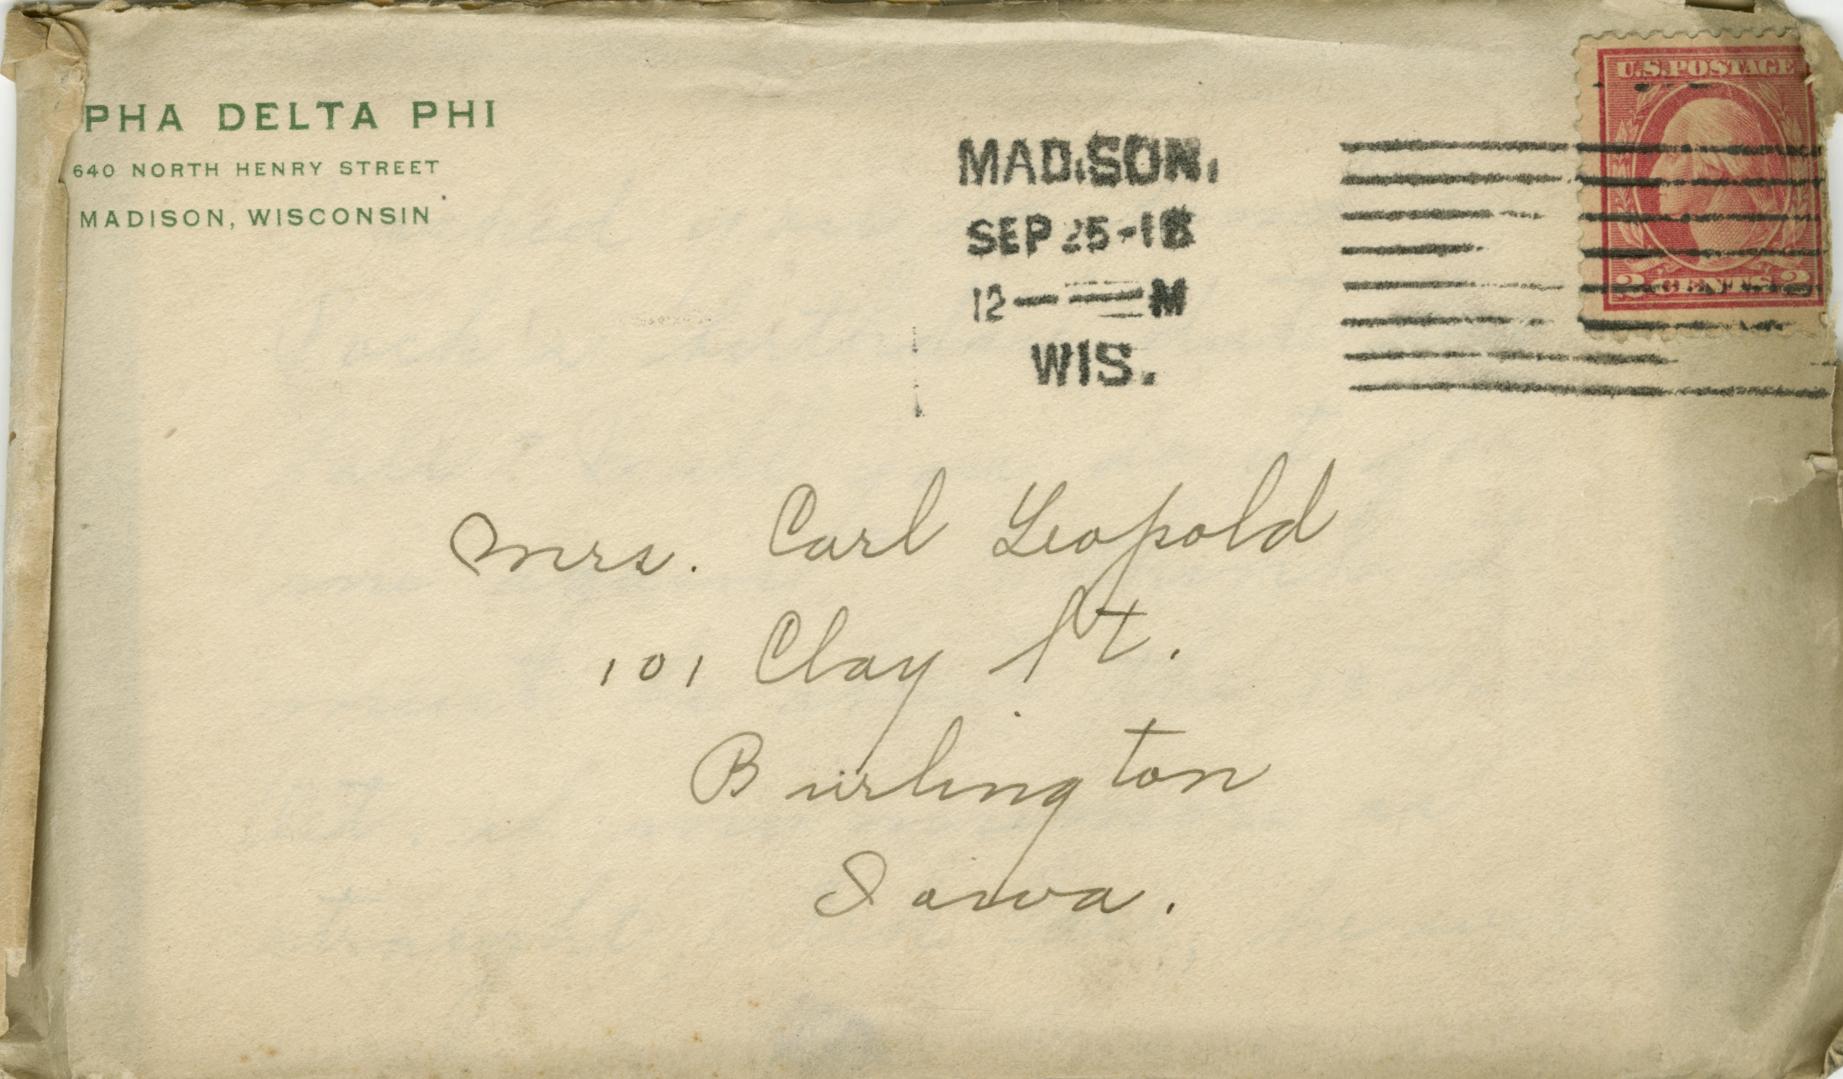 PHA DELTA PHI
640 NORTH HENRY STREET
MADISON, WISCONSIN
MADISON,
SEP 25-18
12 — M
WIS.
U.S. POSTAGE
2 CENTS 2
Mrs. Carl Leopold
101 Clay St.
Burlington
Iowa.